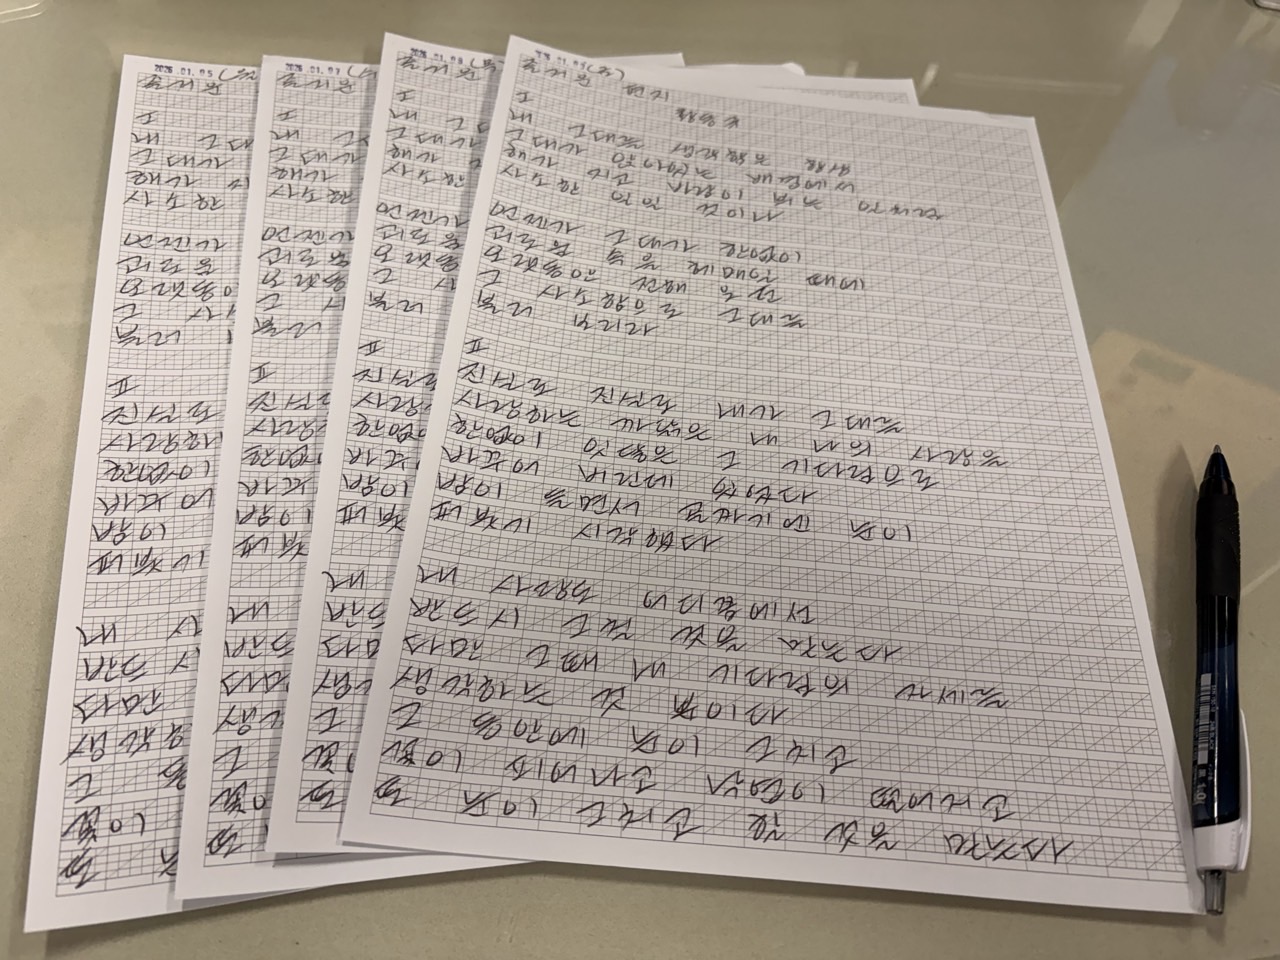 2026.01.05 (월
즐거운
I
내 그대
그대가
해가 지
사소한
언젠가
괴로움
오랫동안
그 사
불러
II
진실로
사랑하
한없이
바꾸어
밤이
퍼붓기
내 사
반드시
다만
생각하
그 동
꽃이
또 눈
2026.01.07 (
즐거운
I
내 그대
그대가
해가
사소한
언젠가
괴로움
오랫동
그 사
불러
II
진실로
사랑하
한없이
바꾸어
밤이
퍼붓
내
반드
다만
생각
그
꽃이
또
2026.01.08 (목
즐거운
I
내 그대
그대가
해가
사소한
언젠가
괴로움
오랫동
그 사
불러
II
진실로
사랑
한없이
바꾸어
밤이
퍼붓
내
반드
다만
생각
그
꽃이
또
2026.01.09 (금)
즐거운 편지
황동규
I
내 그대를 생각함은 항상
그대가 앉아있는 배경에서
해가 지고 바람이 부는 일처럼
사소한 일일 것이나
언젠가 그대가 한없이
괴로움 속을 헤매일 때에
오랫동안 전해 오던
그 사소함으로 그대를
불러 보리라
II
진실로 진실로 내가 그대를
사랑하는 까닭은 내 나의 사랑을
한없이 잇닿은 그 기다림으로
바꾸어 버린데 있었다
밤이 들면서 골짜기엔 눈이
퍼붓기 시작했다
내 사랑도 어디쯤에선
반드시 그칠 것을 믿는다
다만 그때 내 기다림의 자세를
생각하는 것 뿐이다
그 동안에 눈이 그치고
꽃이 피어나고 낙엽이 떨어지고
또 눈이 그치고 할 것을 믿는다